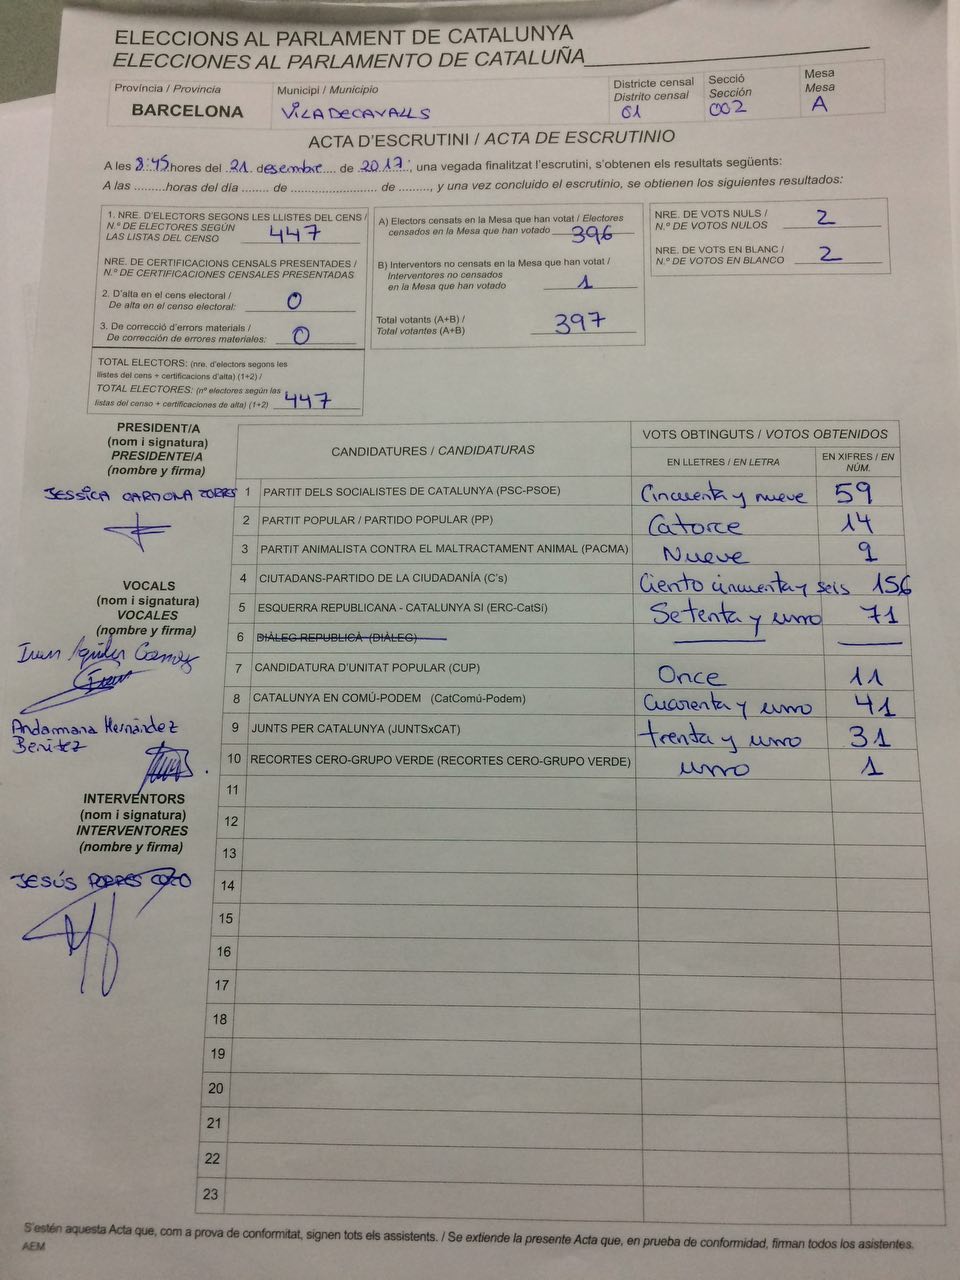 ELECCIONS AL PARLAMENT DE CATALUNYA
ELECCIONES AL PARLAMENTO DE CATALUÑA
Província / Provincia
BARCELONA
Municipi / Municipio
VILADECAVALLS
Districte censal
Distrito censal
01
Secció
Sección
002
Mesa
Mesa
A
ACTA D'ESCRUTINI / ACTA DE ESCRUTINIO
A les 8:45 hores del 21 desembre de 2017, una vegada finalitzat l'escrutini, s'obtenen els resultats següents:
A las .........horas del día ....... de ..................... de ........., y una vez concluido el escrutinio, se obtienen los siguientes resultados:
1. NRE. D'ELECTORS SEGONS LES LLISTES DEL CENS /
N.º DE ELECTORES SEGÚN
LAS LISTAS DEL CENSO 447
NRE. DE CERTIFICACIONS CENSALS PRESENTADES /
N.º DE CERTIFICACIONES CENSALES PRESENTADAS
2. D'alta en el cens electoral /
De alta en el censo electoral: 0
3. De correcció d'errors materials /
De corrección de errores materiales: 0
TOTAL ELECTORS: (nre. d'electors segons les
llistes del cens + certificacions d'alta) (1+2) /
TOTAL ELECTORES: (nº electores según las
listas del censo + certificaciones de alta) (1+2) 447
A) Electors censats en la Mesa que han votat / Electores
censados en la Mesa que han votado 396
B) Interventors no censats en la Mesa que han votat /
Interventores no censados
en la Mesa que han votado 1
Total votants (A+B) /
Total votantes (A+B) 397
NRE. DE VOTS NULS /
N.º DE VOTOS NULOS 2
NRE. DE VOTS EN BLANC /
N.º DE VOTOS EN BLANCO 2
PRESIDENT/A
(nom i signatura)
PRESIDENTE/A
(nombre y firma)
JESSICA CARMONA TORRES
VOCALS
(nom i signatura)
VOCALES
(nombre y firma)
Andamana Hernández
Benitez
INTERVENTORS
(nom i signatura)
INTERVENTORES
(nombre y firma)
JESÚS
CANDIDATURES / CANDIDATURAS
VOTS OBTINGUTS / VOTOS OBTENIDOS
EN LLETRES / EN LETRA
EN XIFRES / EN
NÚM.
1 PARTIT DELS SOCIALISTES DE CATALUNYA (PSC-PSOE) Cincuenta y nueve 59
2 PARTIT POPULAR / PARTIDO POPULAR (PP) Catorce 14
3 PARTIT ANIMALISTA CONTRA EL MALTRACTAMENT ANIMAL (PACMA) Nueve 9
4 CIUTADANS-PARTIDO DE LA CIUDADANÍA (C's) Ciento cincuenta y seis 156
5 ESQUERRA REPUBLICANA - CATALUNYA SI (ERC-CatSí) Setenta y uno 71
6 DIÀLEG REPUBLICÀ (DIÀLEG)
7 CANDIDATURA D'UNITAT POPULAR (CUP) Once 11
8 CATALUNYA EN COMÚ-PODEM (CatComú-Podem) Cuarenta y uno 41
9 JUNTS PER CATALUNYA (JUNTSxCAT) trenta y uno 31
10 RECORTES CERO-GRUPO VERDE (RECORTES CERO-GRUPO VERDE) uno 1
11
12
13
14
15
16
17
18
19
20
21
22
23
S'estén aquesta Acta que, com a prova de conformitat, signen tots els assistents. / Se extiende la presente Acta que, en prueba de conformidad, firman todos los asistentes.
AEM